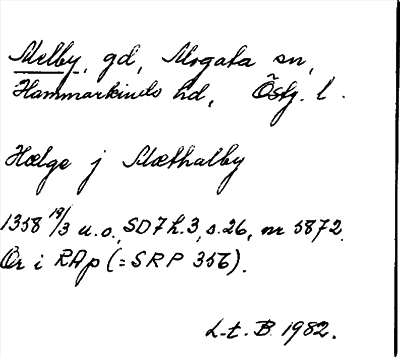 Melby, gd, Mogata sn,
Hammarkinds hd, Östg. l.
Hælge j Mæthalby
1358 19/3 u.o., SD7h.3, s.26, nr 5872.
Or i RAp (=SRP 356).
L-t. B. 1982.